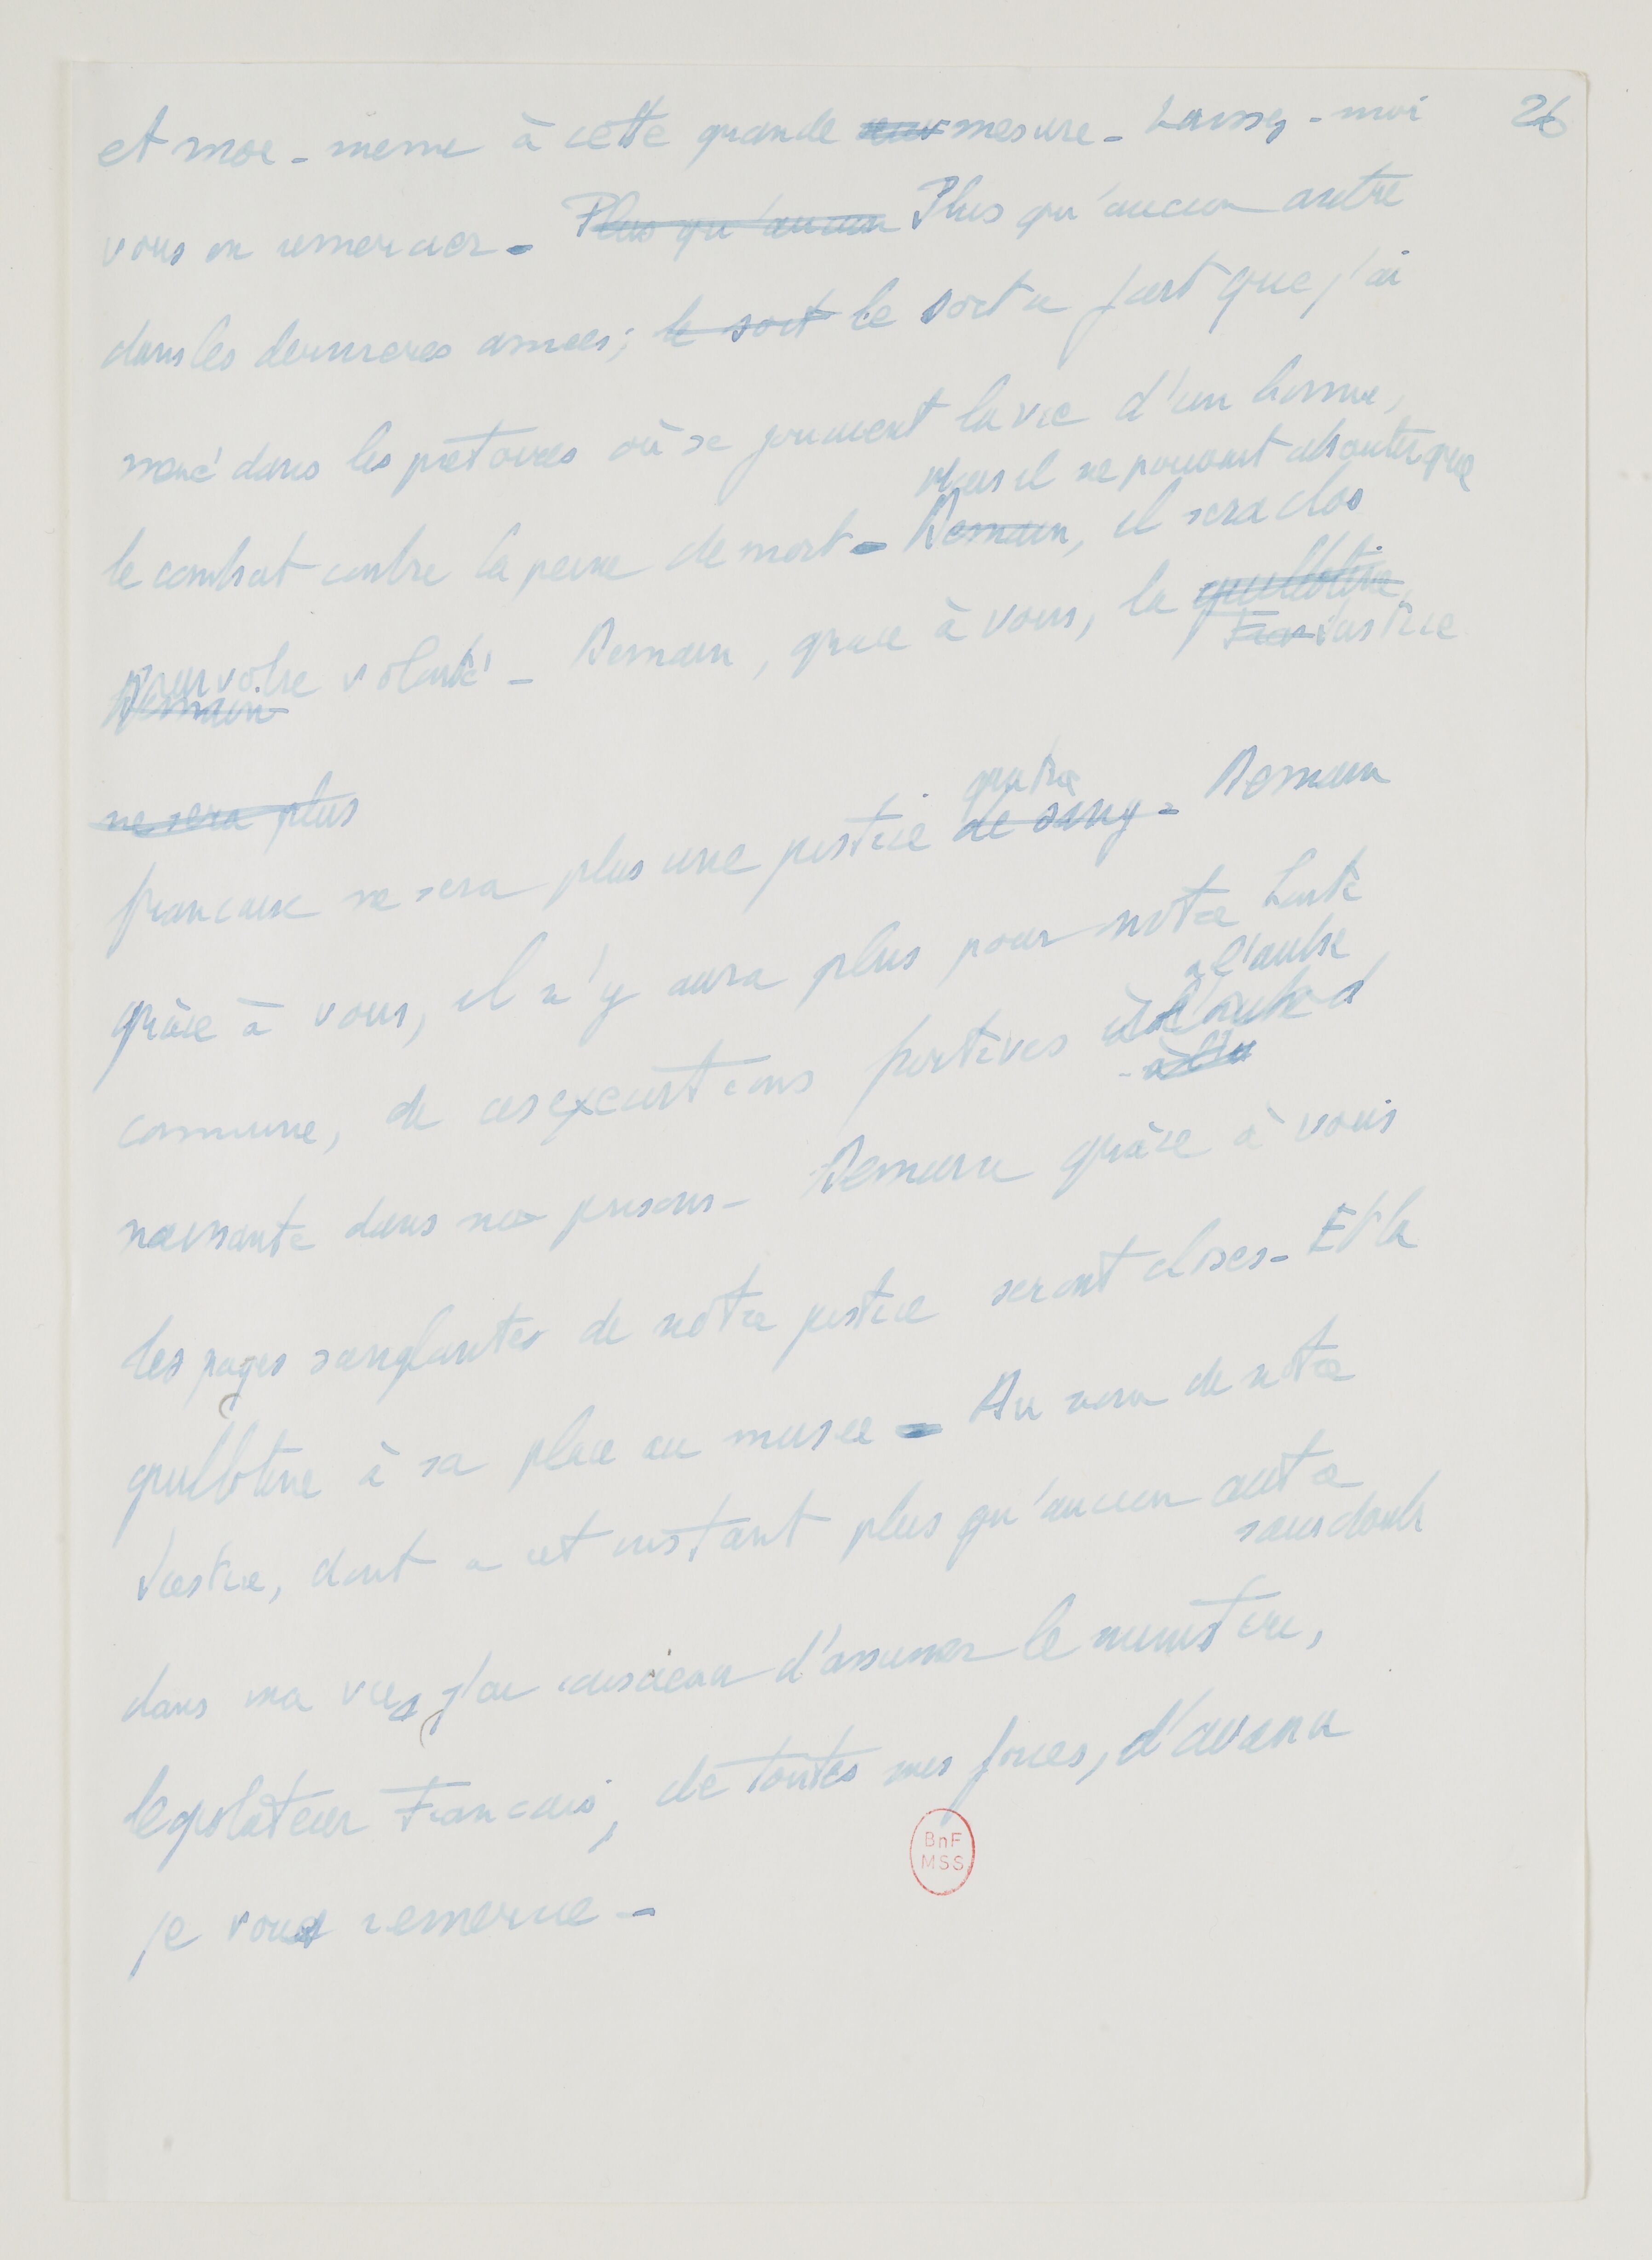 26
et moi-même à cette grande mesure - Laissez-moi
vous en remercier - Plus qu'aucun Plus qu'aucun autre
dans les dernières années; le sort le sort a fait que j'ai
mené dans les prétoires où se jouaient la vie d'un homme,
Mais il ne pouvait aboutir que
le combat contre la peine de mort - Demain, il sera clos
par votre volonté - Demain, grace à vous, la guillotine,
Demain
Justice
ne sera plus
francaise ne sera plus une justice de sang - Demain
qui tue
grâce à vous, il n'y aura plus pour notre honte
à l'aube
commune, de ces executions furtives à l'aube
naissante dans nos prisons - Demain grâce à vous
les pages sanglantes de notre justice seront closes - Et la
guillotine à sa place au musee - Au nom de notre
Justice, dont a cet instant plus qu'aucun autre
sans doute
dans ma vie, j'ai conscience d'assumer le ministère,
legislateur Francais, de toutes mes forces, d'avance
je vous remercie -
BnF
MSS